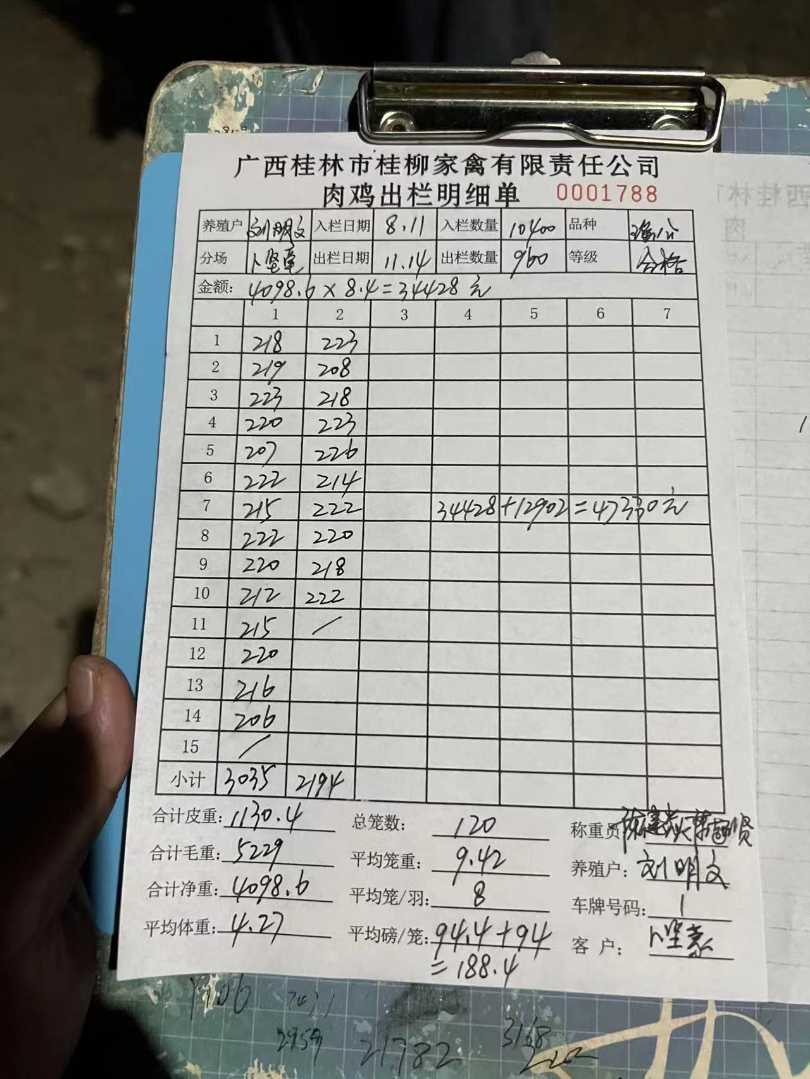 广西桂林市桂柳家禽有限责任公司
肉鸡出栏明细单 0001788
养殖户 刘明文 入栏日期 8.11 入栏数量 10400 品种
分场 出栏日期 11.14 出栏数量 960 等级 合格
金额: 4098.6 × 8.4 = 34428元
1 2 3 4 5 6 7
1 218 223
2 219 208
3 223 218
4 220 223
5 207 226
6 222 214
7 215 222 34428+12902=47330元
8 222 220
9 220 218
10 212 222
11 215 /
12 220
13 216
14 206
15 /
小计 3035 2194
合计皮重: 1130.4 总笼数: 120 称重员
合计毛重: 5229 平均笼重: 9.42 养殖户: 刘明文
合计净重: 4098.6 平均笼/羽: 8 车牌号码: 1
平均体重: 4.27 平均磅/笼: 94.4+94 客户:
=188.4
21782